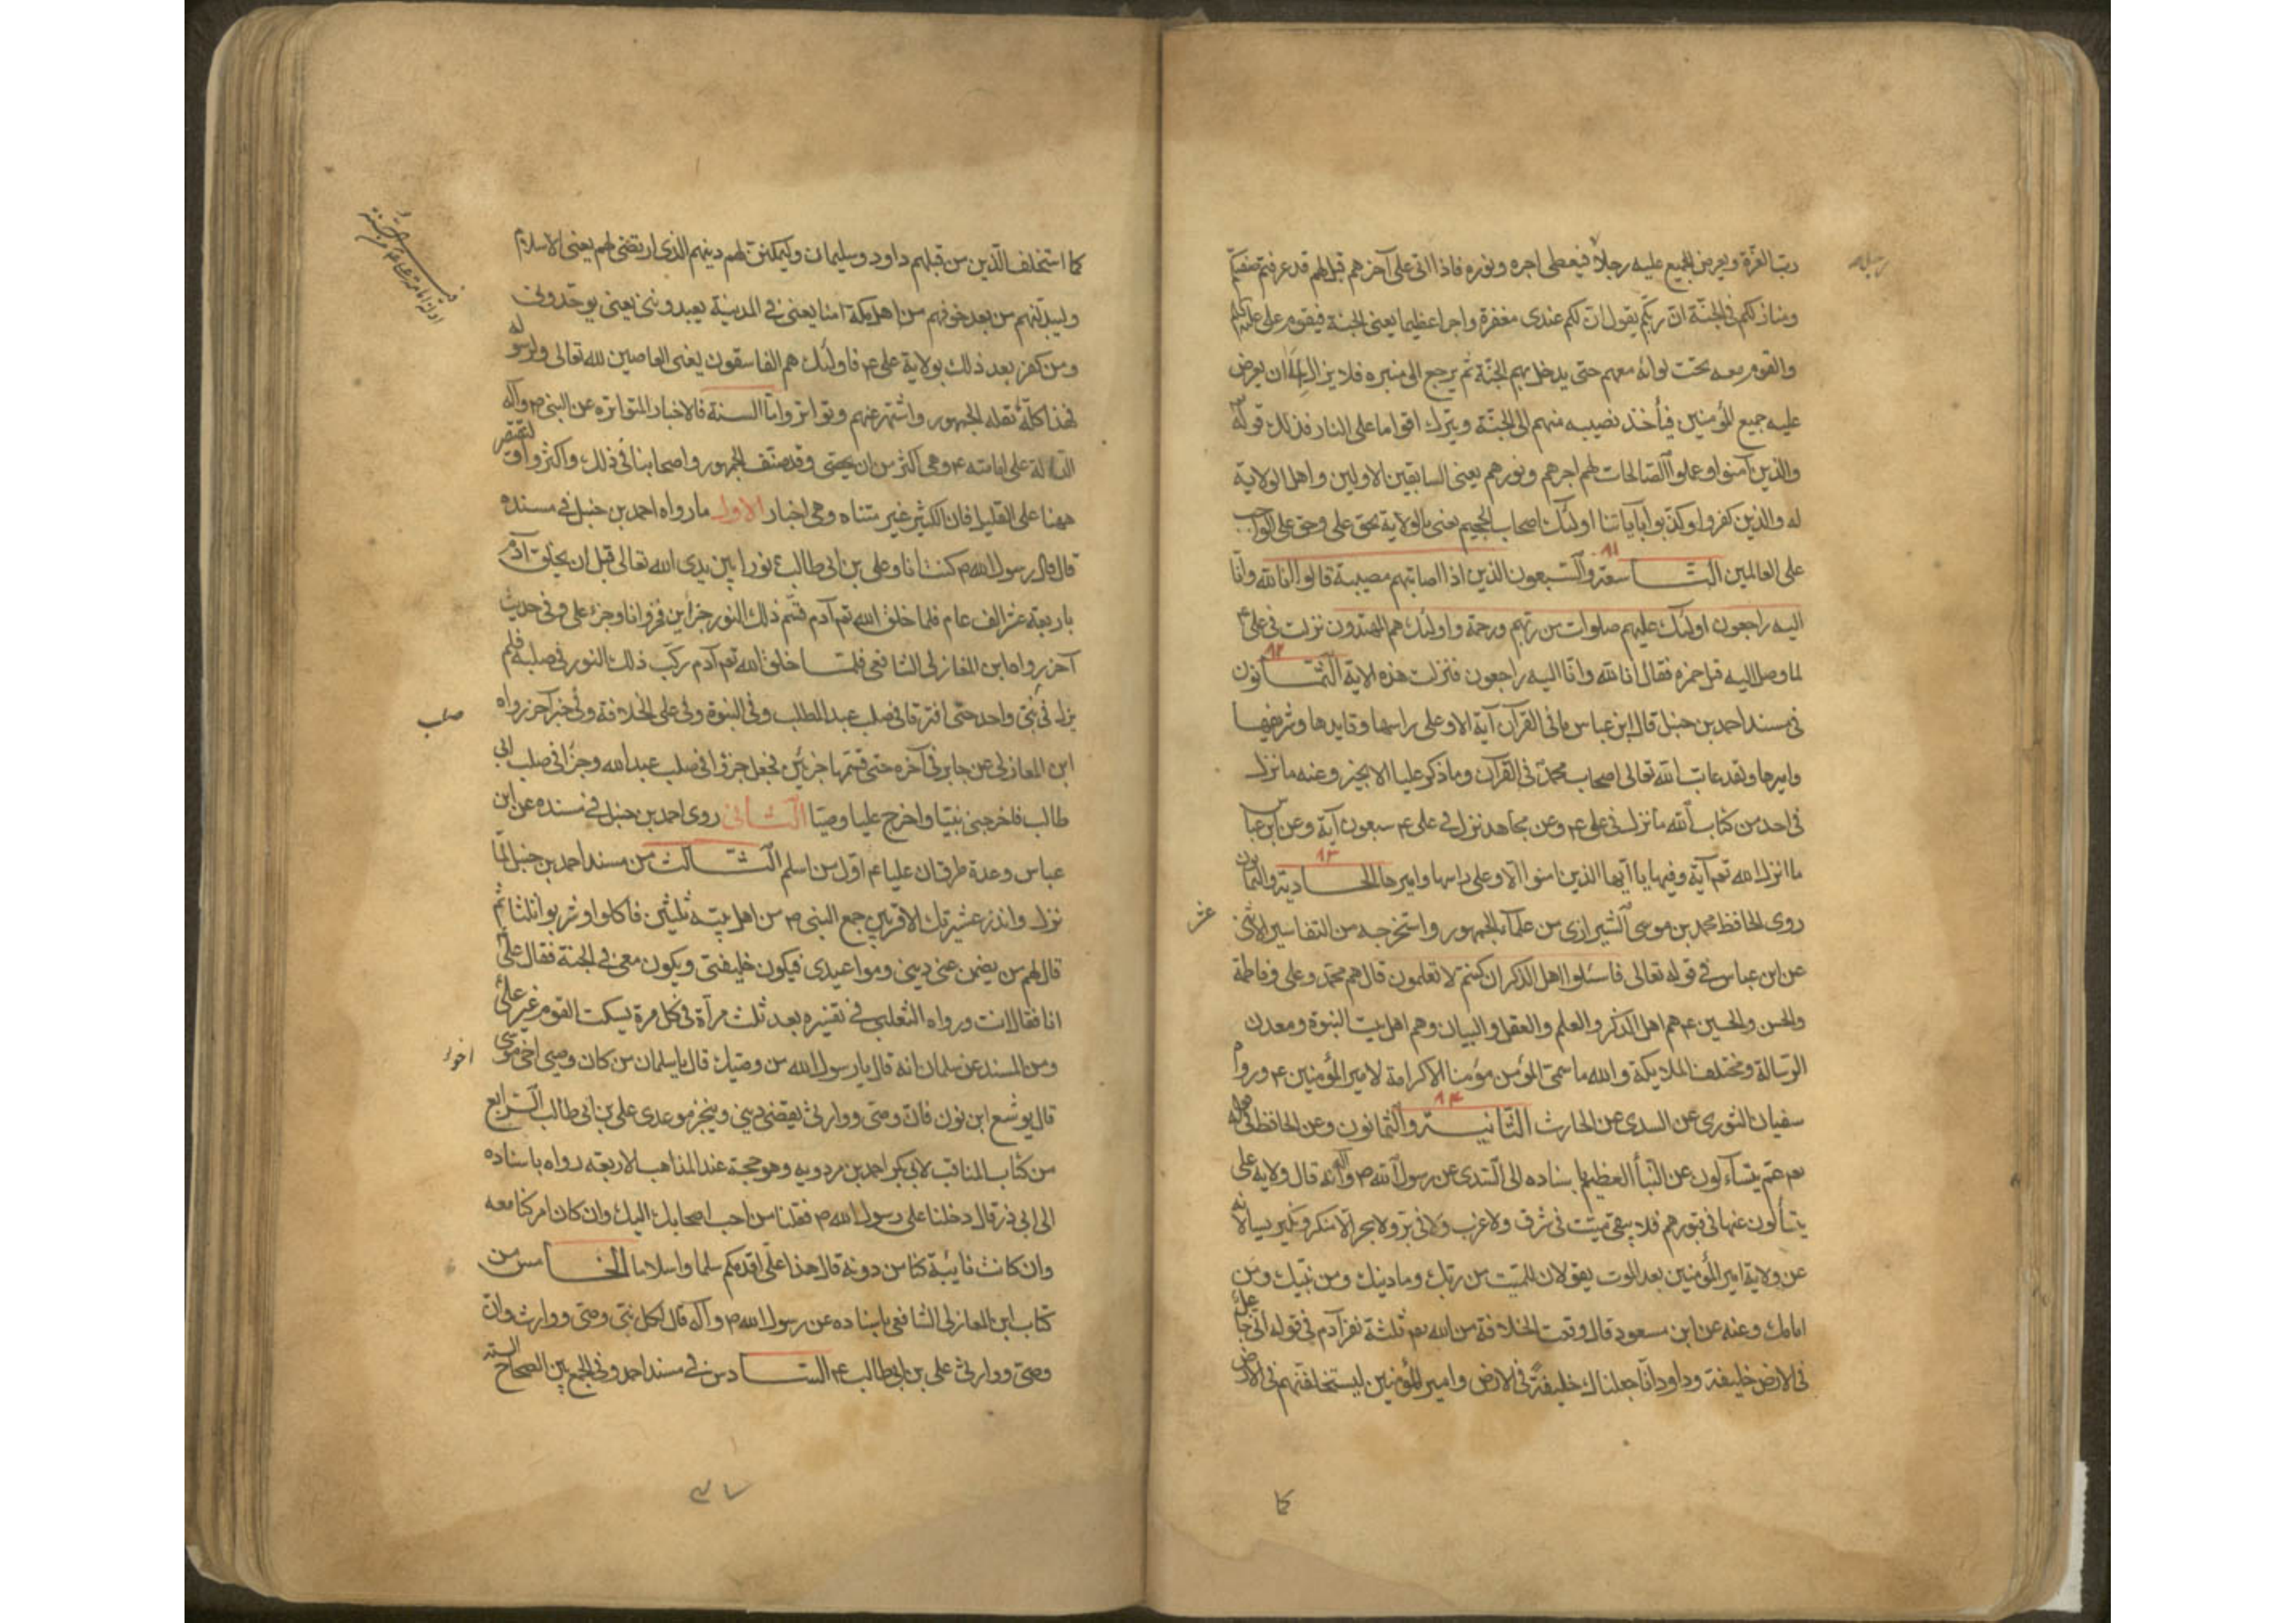 رب العزة ويعرض الجميع عليه رجلا رجلا فيعطى اجره ونوره فاذا اتى على آخرهم قيل لهم قد عرفتم صفتكم
ومنازلكم فى الجنة ان ربكم يقول ان لكم عندى مغفرة واجرا عظيما يعنى الجنة فيقوم على
والقوم معه تحت لوائه معهم حتى يدخل بهم الجنة ثم يرجع الى منبره فلا يزال الى ان يعرض
عليه جميع المؤمنين فيأخذ نصيبه منهم الى الجنة ويترك اقواما على النار فذلك قوله
والذين آمنوا وعملوا الصالحات لهم اجرهم ونورهم يعنى السابقين الاولين واهل الولاية
له والذين كفروا وكذبوا بآياتنا اولئك اصحاب الجحيم يعنى بالولاية بحق على وحق على الواجب
على العالمين التاسعة والسبعون الذين اذا اصابتهم مصيبة قالوا انا لله وانا
اليه راجعون اولئك عليهم صلوات من ربهم ورحمة واولئك هم المهتدون نزلت فى على ع
لما وصل اليه قتل حمزه فقال انا لله وانا اليه راجعون فنزلت هذه الاية الثمانون
فى مسند احمد بن حنبل قال ابن عباس ما فى القرآن آية الا وعلى راسها وقايدها وشريفها
واميرها ولقد عاتب الله تعالى اصحاب محمد فى القرآن وما ذكر عليا الا بخير وعنه ما نزل
فى احد من كتاب الله ما نزل فى على ع وعن مجاهد نزل فى على ع سبعون آية وعن ابن عباس
ما انزل الله تعم آية وفيها يا ايها الذين امنوا الا وعلى راسها واميرها الحادية والثمانون
روى الحافظ محمد بن موسى الشيرازى من علماء الجمهور واستخرجه من التفاسير الاثنى
عشر
عن ابن عباس فى قوله تعالى فاسئلوا اهل الذكر ان كنتم لا تعلمون قال هم محمد وعلى وفاطمة
والحسن والحسين ع هم اهل الذكر والعلم والعقل والبيان وهم اهل بيت النبوة ومعدن
الرسالة ومختلف الملايكة والله ما سمى المؤمن مؤمنا الا كرامة لامير المؤمنين ع وروا
سفيان الثورى عن السدى عن الحارث الثانية والثمانون وعن الحافظ فى قوله
تعم عم يتساءلون عن النبأ العظيم باسناده الى السدى عن رسول الله ص وآله انه قال ولاية على
يتسألون عنها فى قبورهم فلا يبقى ميت فى شرق ولا غرب ولا فى بر ولا بحر الا منكر ونكير يسألانه
عن ولاية امير المؤمنين بعد الموت يقولان للميت من ربك وما دينك ومن نبيك ومن
امامك وعنه عن ابن مسعود قال وقعت الخلافة من الله تعم لثلثة نفر آدم فى قوله انى جاعل
فى الارض خليفة وداود انا جعلناك خليفة فى الارض وامير المؤمنين ليستخلفنهم فى الارض
كما
كما استخلف الذين من قبلهم داود وسليمان وليمكنن لهم دينهم الذى ارتضى لهم يعنى الاسلام
وليبدلنهم من بعد خوفهم من اهل مكة امنا يعنى فى المدينة يعبدوننى يعنى يوحدوننى
ومن كفر بعد ذلك بولاية على ع فاولئك هم الفاسقون يعنى العاصين لله تعالى ولرسوله
فهذا كله نقله الجمهور واشتهر عنهم وتواتر واما السنة فالاخبار المتواتره عن النبى ص وآله
الدالة على امامته ع وهى اكثر من ان يحصى وقد صنف الجمهور واصحابنا فى ذلك واكثروا ولنقتصر
ههنا على القليل فان الكثير غير متناه وهى اخبار الاول ما رواه احمد بن حنبل فى مسنده
قال قال رسول الله ص كنت انا وعلى بن ابى طالب ع نورا بين يدى الله تعالى قبل ان يخلق آدم
باربعة عشر الف عام فلما خلق الله تعم آدم قسم ذلك النور جزأين فجزو انا وجزء على وفى حديث
آخر رواه ابن المغازلى الشافعى فلما خلق الله تعم آدم ركب ذلك النور فى صلبه فلم
يزل فى شئ واحد حتى افترقا فى صلب عبد المطلب وفى النبوة وفى على الخلافة وفى خبر آخر رواه
صلب
ابن المغازلى عن جابر فى آخره حتى قسمها جزئين فجعل جزؤا فى صلب عبد الله وجزا فى صلب ابى
طالب فاخرجنى نبيا واخرج عليا وصيا الثانى روى احمد بن حنبل فى مسنده عن ابن
عباس وعدة طرق ان عليا ع اول من اسلم الثالث من مسند احمد بن حنبل لما
نزل وانذر عشيرتك الاقربين جمع النبى ص من اهل بيته ثلثين فاكلوا وشربوا ثلثا ثم
قال لهم من يضمن عنى دينى ومواعيدى فيكون خليفتى ويكون معى فى الجنة فقال على
انا فقال انت ورواه الثعلبى فى تفسيره بعد ثلث مرآة فى كل مرة يسكت القوم غير على ع
ومن المسند عن سلمان انه قال يا رسول الله من وصيك قال يا سلمان من كان وصى اخى موسى
قال يوشع ابن نون فان وصى ووارثى يقضى دينى وينجز موعدى على بن ابى طالب الرابع
من كتاب المناقب لابى بكر احمد بن مردويه وهو حجة عند المذاهب الاربعه رواه باسناده
الى ابى ذر قال دخلنا على رسول الله ص فقلنا من احب اصحابك اليك وان كان امر كنا معه
وان كانت نائبة كنا من دونه قال هذا على اقدمكم سلما واسلاما الخامس من
كتاب ابن المغازلى الشافعى باسناده عن رسول الله ص وآله قال لكل نبى وصى ووارث وان
وصى ووارثى على بن ابى طالب ع السادس فى مسند احمد وفى الجمع بين الصحاح الستة